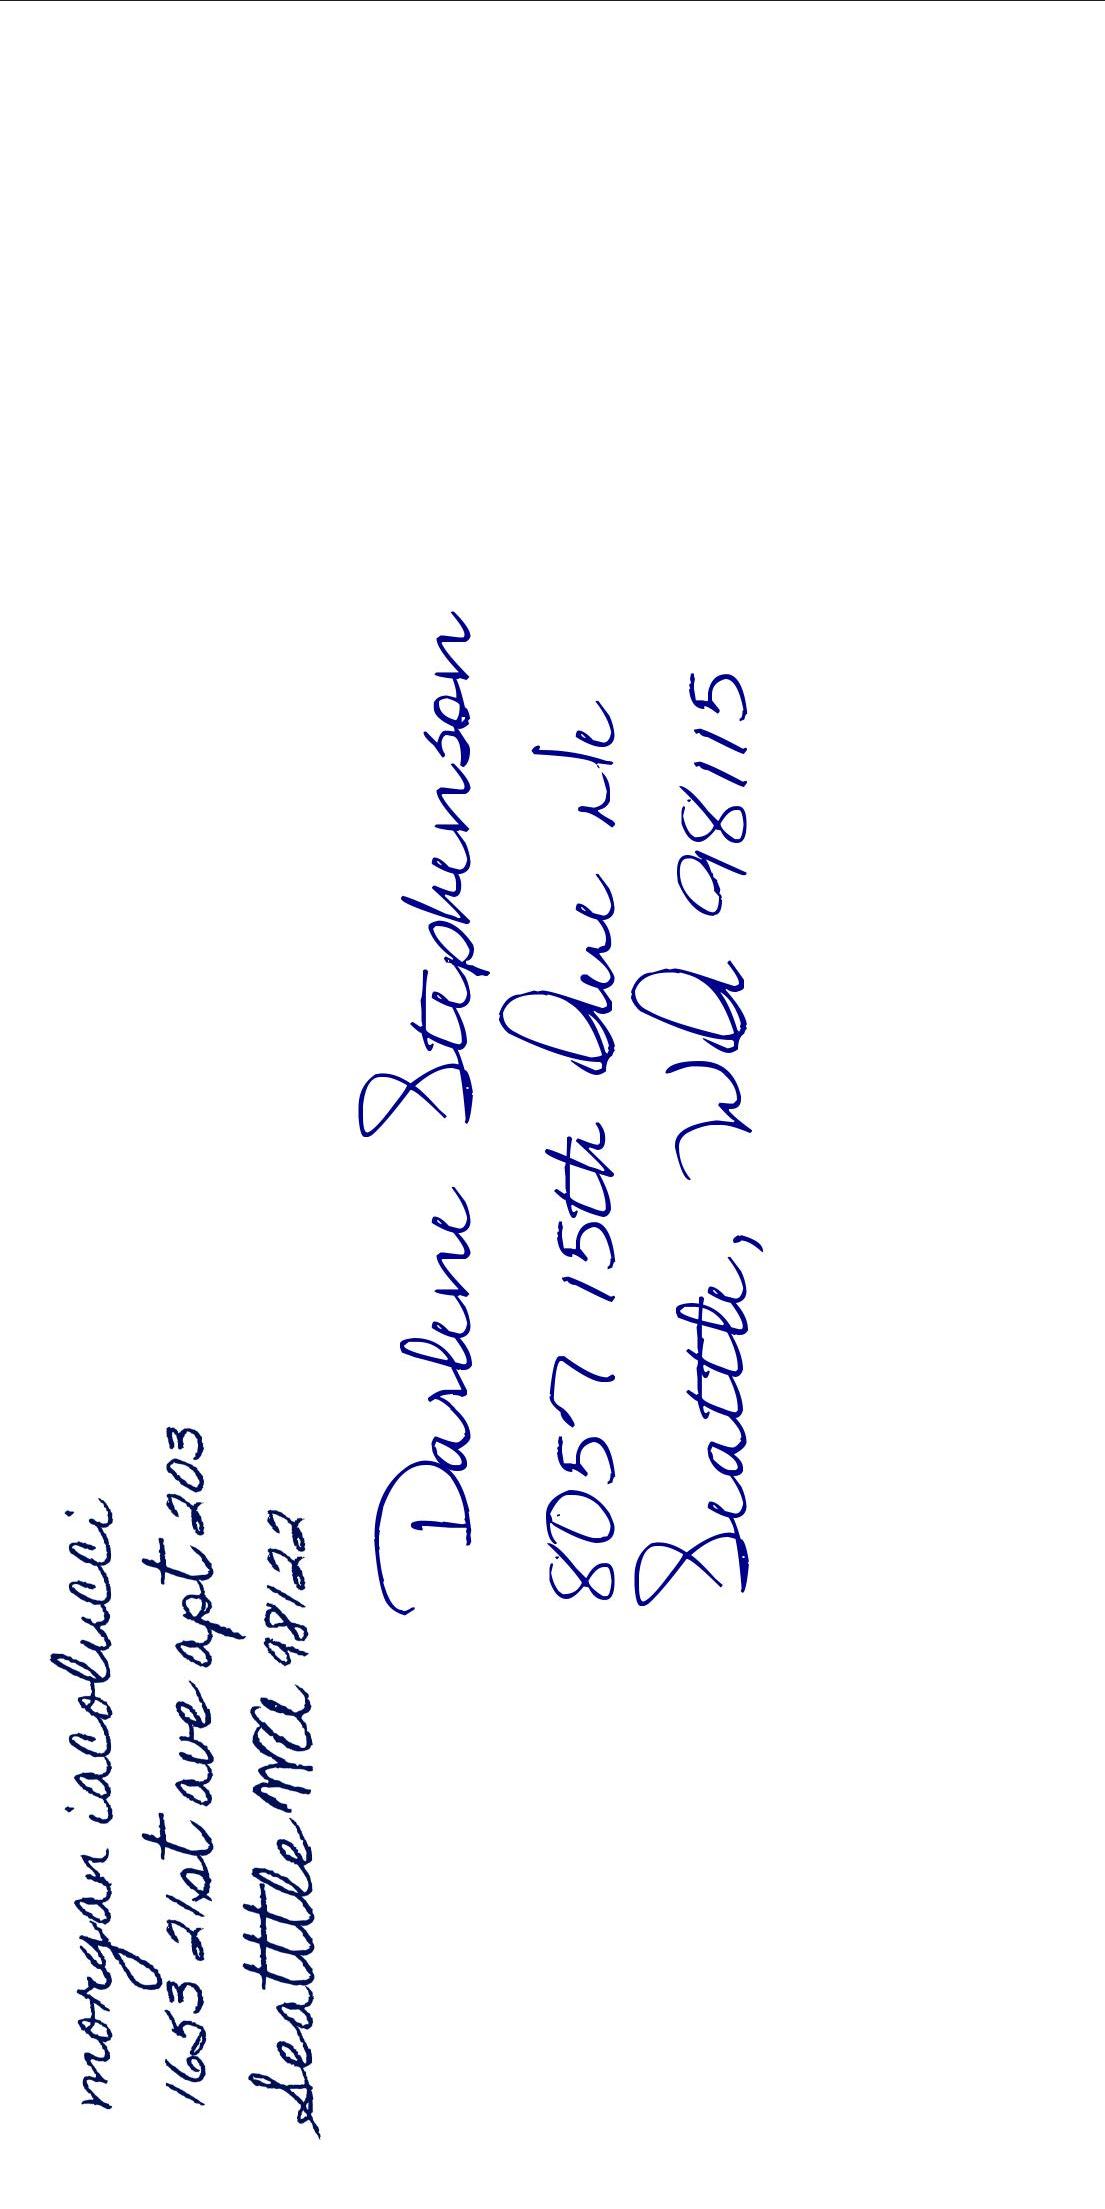 morgan iacolucci
1653 21st ave apt 203
Seatttle WA 98122
Darlene Stephenson
8057 15th Ave Ne
Seattle, WA 98115